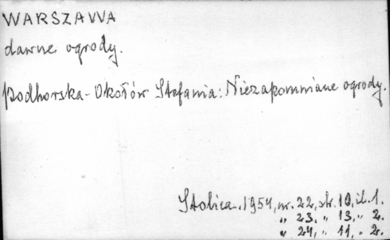 WARSZAWA
dawne ogrody.
Podhorska-Okołów Stefania: Niezapomniane ogrody.
Stolica. 1954, nr. 22, str. 10, il. 1.
" 23, " 13, " 2.
" 24, " 11, " 2.